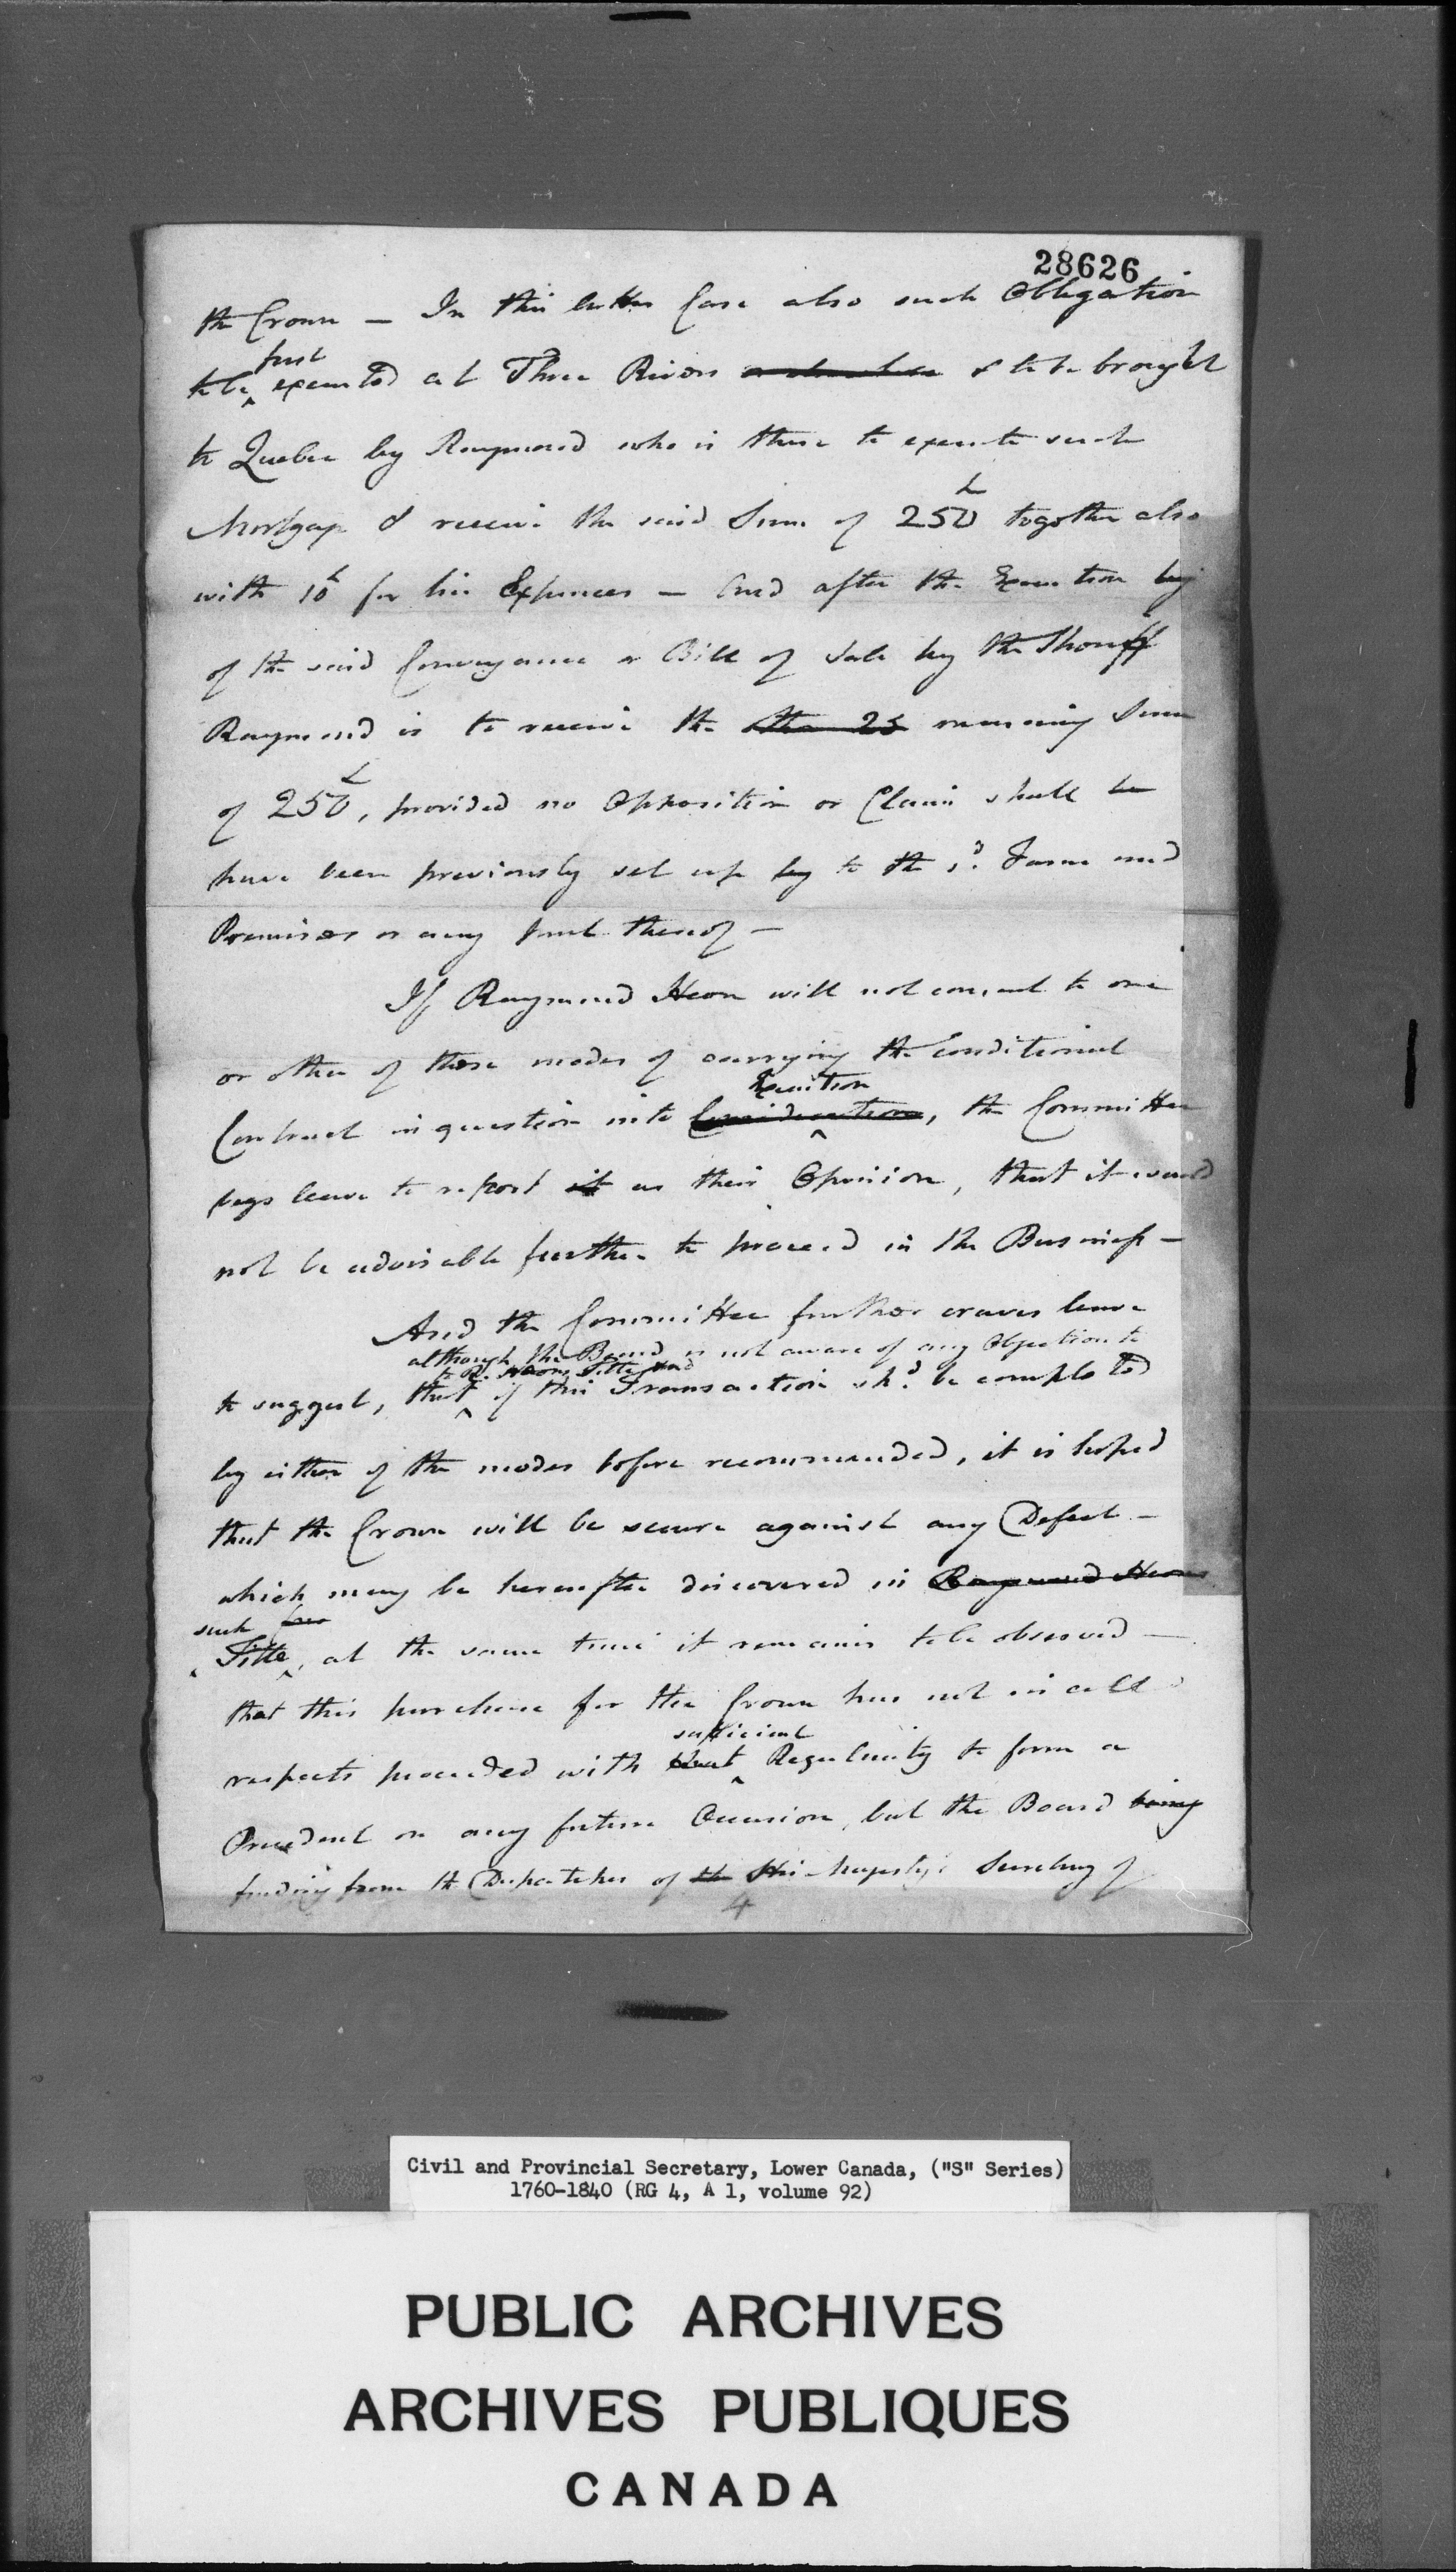 28626
the Crown — In this latter Case also such Obligation
first
to be executed at Three Rivers & to be brought
to Quebec by Raymond who is there to execute such
Mortgage & receive the said Sum of 250£ together also
with 10£ for his Expences — And after the Execution by
of the said Conveyance or Bill of Sale by the Sheriff
Raymond is to receive the other 25 remaining Sum
of 250£, provided no Opposition or Claim shall be
have been previously set up by to the sd. Farm and
Premises or any part thereof —
If Raymond Heon will not consent to one
or other of these modes of carrying the Conditional
Execution
Contract in question into Consideration, the Committee
begs leave to report it as their Opinion, that it would
not be adviseable further to proceed in the Business —
And the Committee further craves leave
although the Board is not aware of any Objection to
to R. Heons Title and
to suggest, that if this Transaction shd. be completed
by either of the modes before recommended, it is hoped
that the Crown will be secure against any Defect —
which may be hereafter discovered in Raymond Heons
such
Title, at the same time it remains to be observed —
that this purchase for the Crown has not in all
sufficient
respects proceeded with that Regularity to form a
Precedent on any future Occasion, but the Board being
finding from the Dispatches of the His Majesty's Secretary of
4
Civil and Provincial Secretary, Lower Canada, ("S" Series)
1760-1840 (RG 4, A 1, volume 92)
PUBLIC ARCHIVES
ARCHIVES PUBLIQUES
CANADA